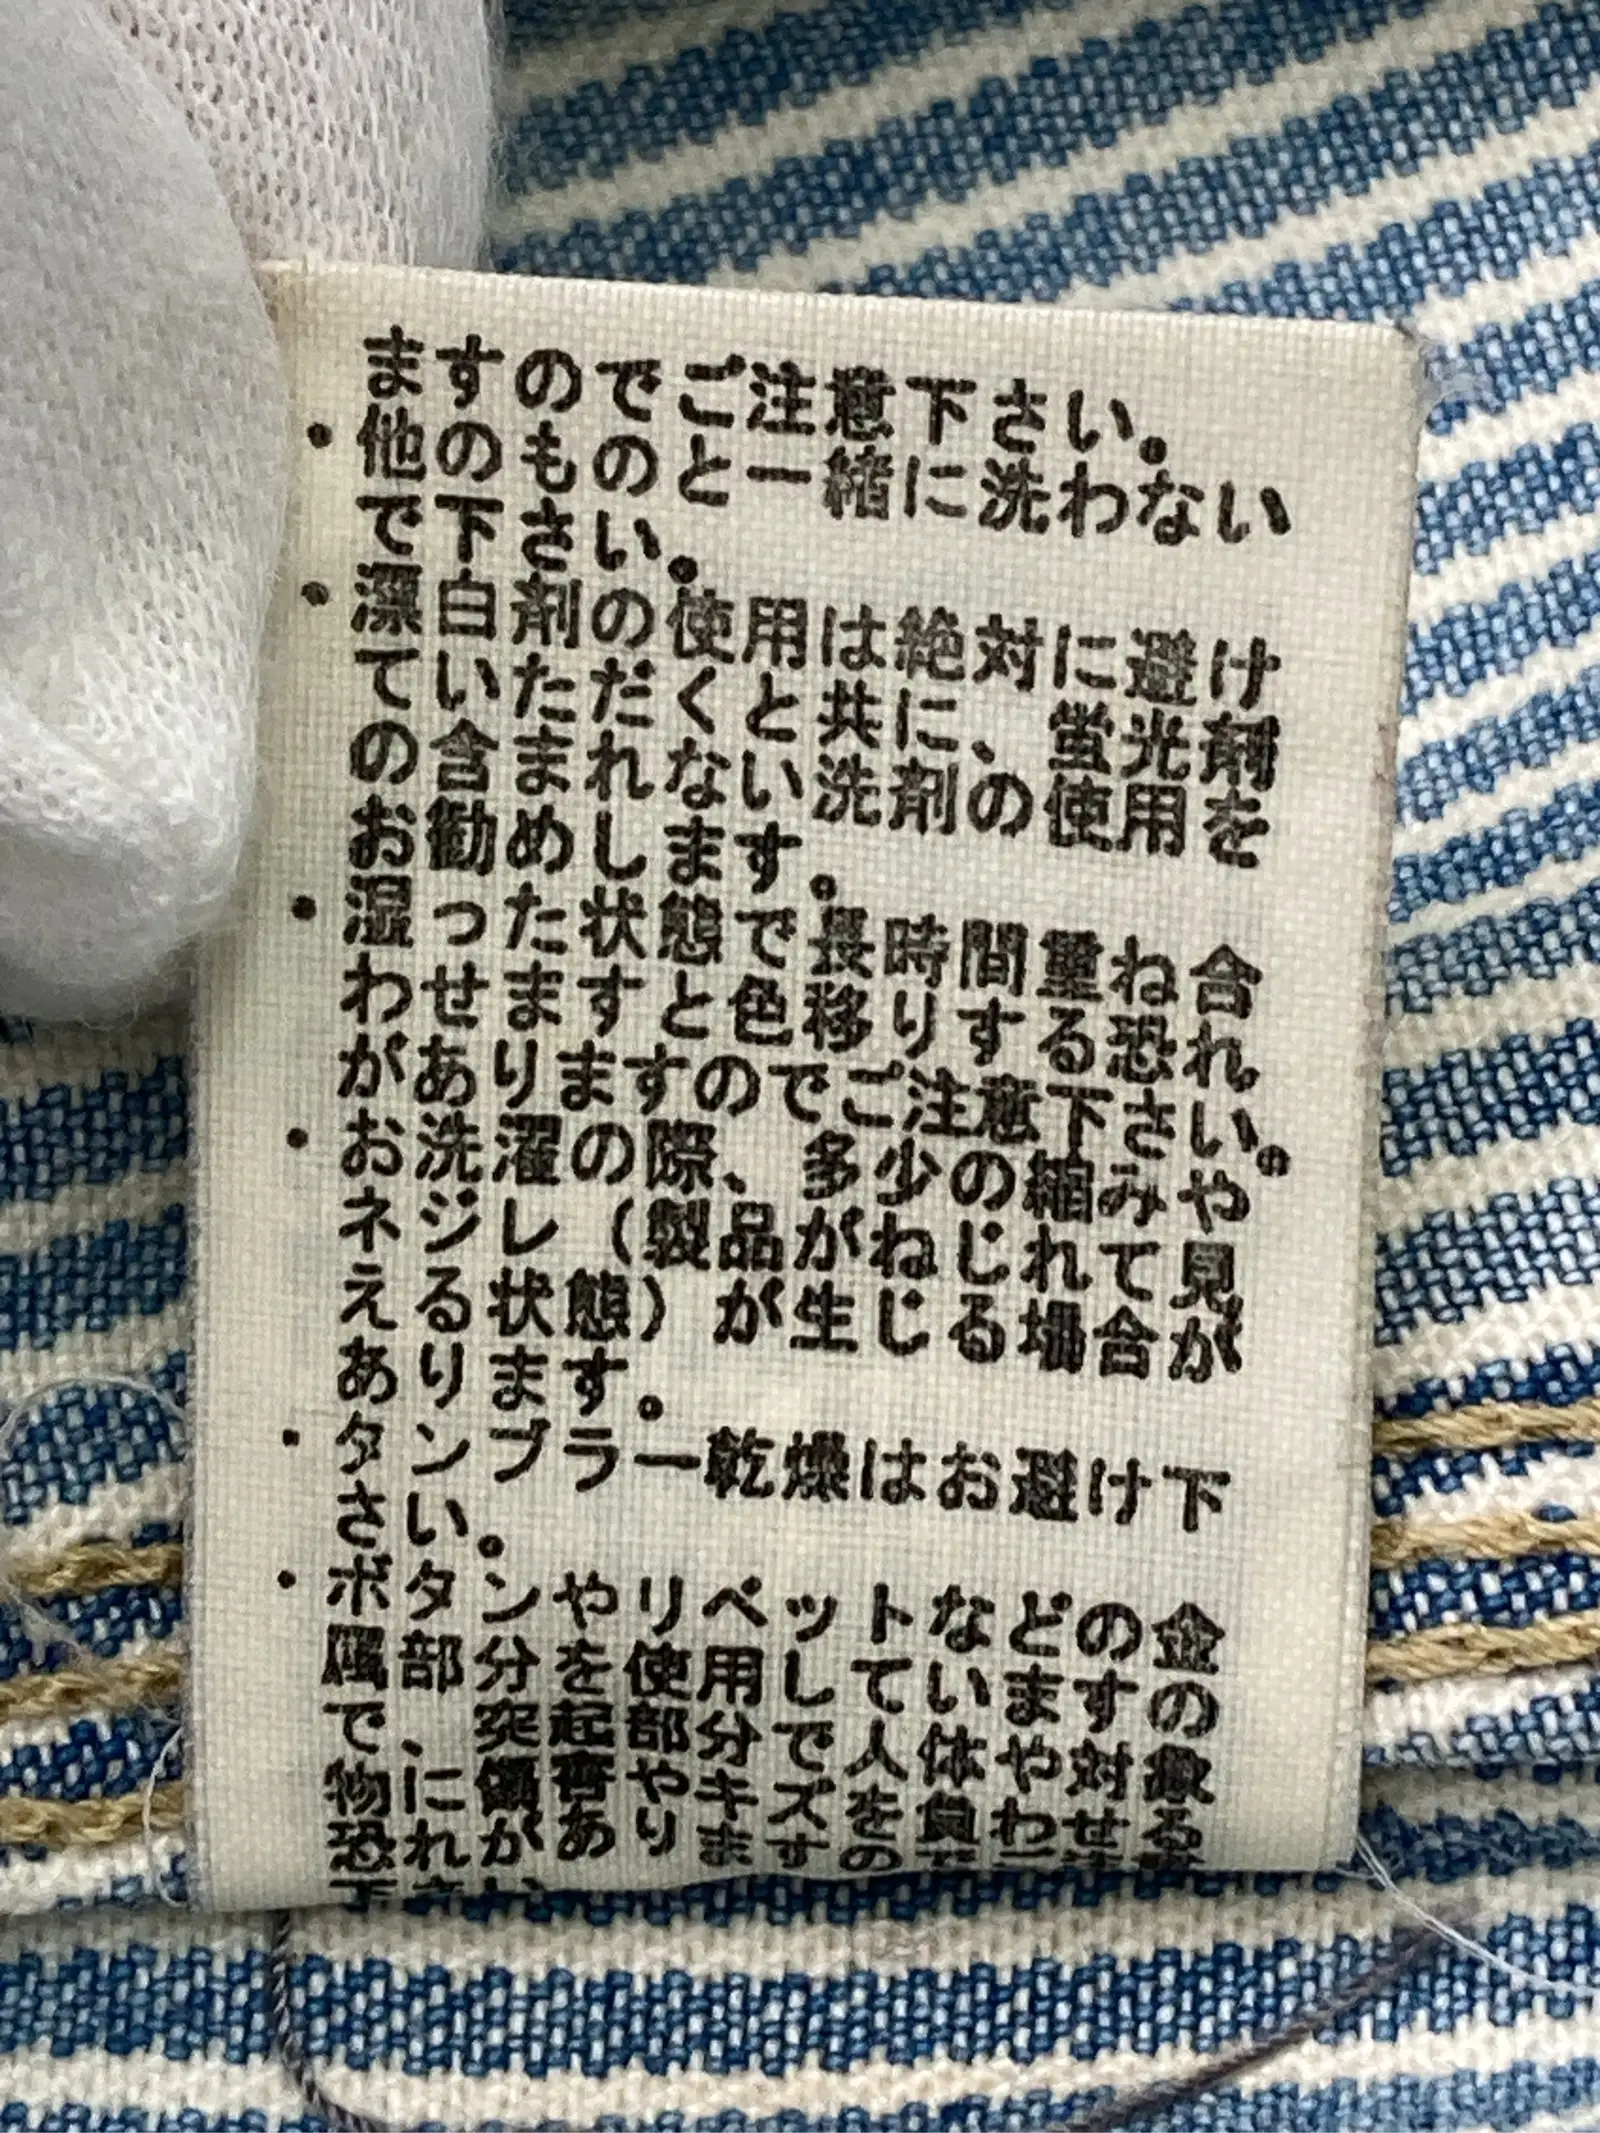 ますのでご注意下さい。
・他のものと一緒に洗わない
で下さい。
・漂白剤の使用は絶対に避け
ていただくと共に、蛍光剤
の含まれない洗剤の使用を
お勧めします。
・湿った状態で長時間重ね合
わせますと色移りする恐れ
がありますのでご注意下さい。
・お洗濯の際、多少の縮みや
ネジレ（製品がねじれて見
える状態）が生じる場合が
あります。
・タンブラー乾燥はお避け下
さい。
・ボタンやリペットなどの金
属部分を使用していますの
で、突起部分で人体や対象
物に損害やキズを負わせる
恐れがありますの